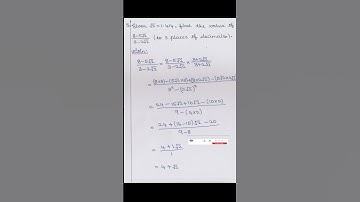 Given √2 = 1.414, find the value of
8-5√2 / 3-2√2 (to 3 places of decimals).
Soln:
8-5√2 / 3-2√2 = 8-5√2 / 3-2√2 × 3+2√2 / 3+2√2
= 24 - 15√2 + 16√2 - (10×2) / 9 - (4×2)
= 24 + (16-15)√2 - 20 / 9 - 8
= 4 + 1√2 / 1
= 4 + √2